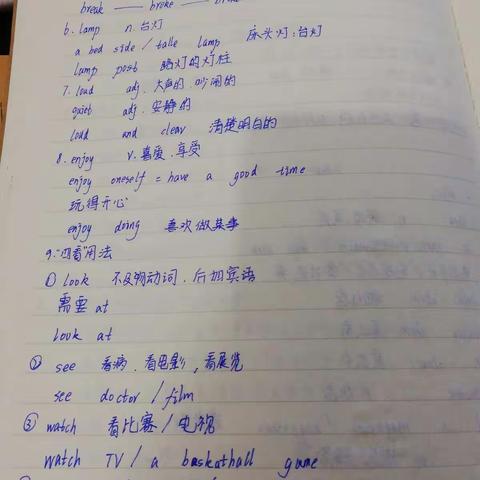 break —— broke —— broke
6. lamp n. 台灯
a bed side / talle lamp 床头灯:台灯
lamp post 路灯的灯柱
7. loud adj. 大声的、吵闹的
quiet adj. 安静的
loud and clear 清楚明白的
8. enjoy v. 喜爱、享受
enjoy oneself = have a good time
玩得开心
enjoy doing 喜欢做某事
9. 四看用法
① look 不及物动词、后加宾语
需要 at
look at
② see 看病、看电影,看展览
see doctor / film
③ watch 看比赛 / 电视
watch TV / a baskathall game